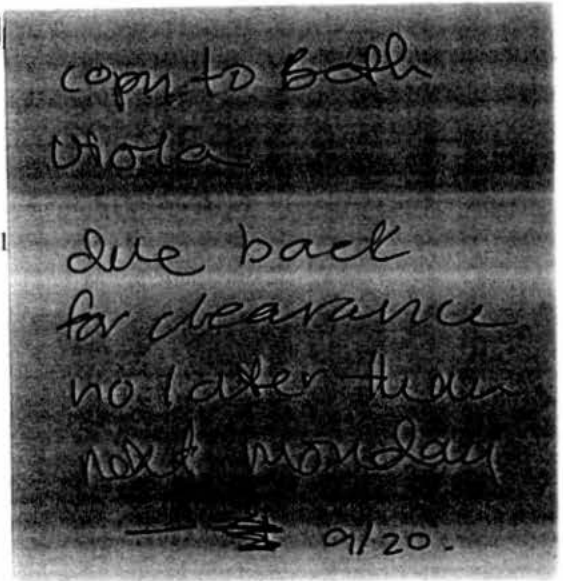 copy to Both
Viola
due back
for clearance
no later than
next monday
— 9/20.